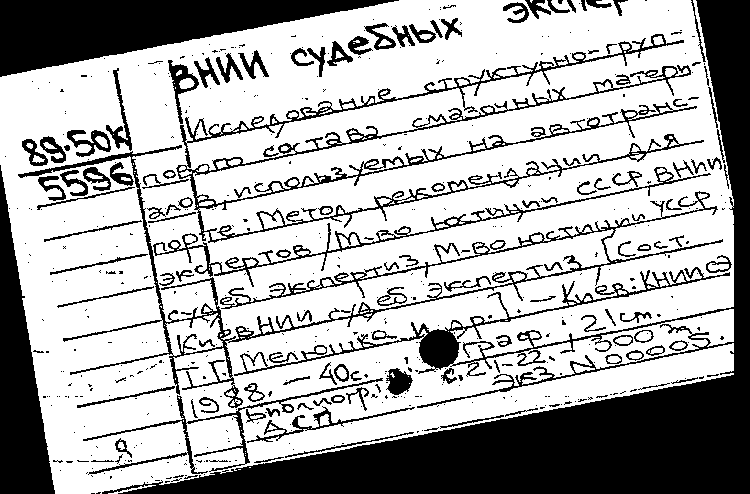 ВНИИ судебных экспер
89-50к
5596
Исследование структурно-груп-
пового состава смазочных матери-
алов, используемых на автотранс-
порте: Метод. рекомендации для
экспертов / М-во юстиции СССР, ВНИИ
судеб. экспертиз, М-во юстиции УССР,
Киев НИИ судеб. экспертиз. [Сост.
Т.Г. Мелюшка и др.]. — Киев: КНИИСЭ
1988. — 40с. граф. ; 21 см.
Библиогр.: с. 21-22. ; 300 т.
ДСП. Экз. N 00005.
Я